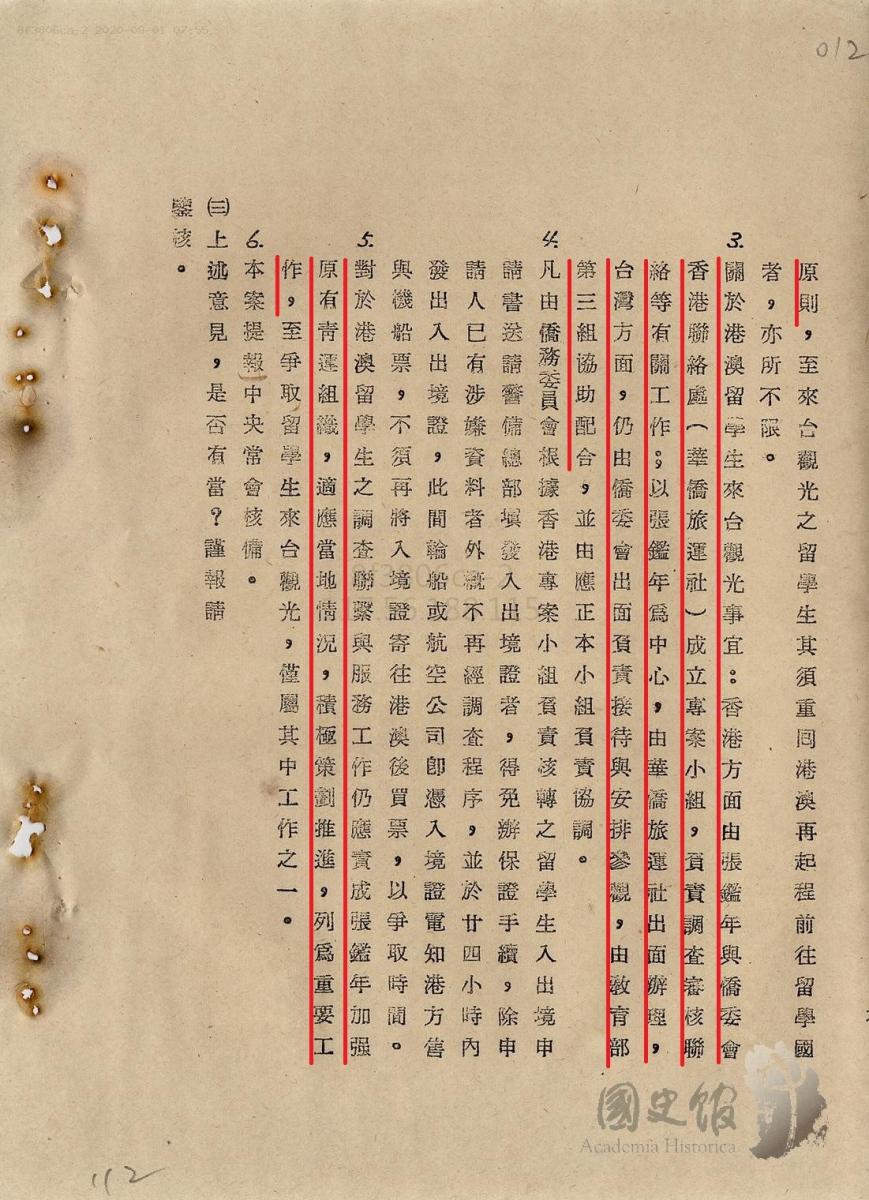 8f3806ca-2 2020-09-01 07:55
012
原則，至來台觀光之留學生其須重囘港澳再起程前往留學國
者，亦所不限。
3.關於港澳留學生來台觀光事宜：香港方面由張鑑年與僑委會
香港聯絡處（華僑旅運社）成立專案小組，負責調查審核聯
絡等有關工作；以張鑑年爲中心，由華僑旅運社出面辦理，
台灣方面，仍由僑委會出面負責接待與安排參觀，由敎育部
第三組協助配合，並由應正本小組負責協調。
4.凡由僑務委員會根據香港專案小組負責核轉之留學生入出境申
請書送請警備總部塡發入出境證者，得免辦保證手續，除申
請人已有涉嫌資料者外概不再經調查程序，並於廿四小時內
發出入出境證，此間輪船或航空公司卽憑入境證電知港方售
與機船票，不須再將入境證寄往港澳後買票，以爭取時間。
5.對於港澳留學生之調查聯繫與服務工作仍應責成張鑑年加强
原有靑運組織，適應當地情況，積極策劃推進，列爲重要工
作，至爭取留學生來台觀光，僅屬其中工作之一。
6.本案提報中央常會核備。
㈢上述意見，是否有當？謹報請
鑒核。
國史館
Academia Historica
112